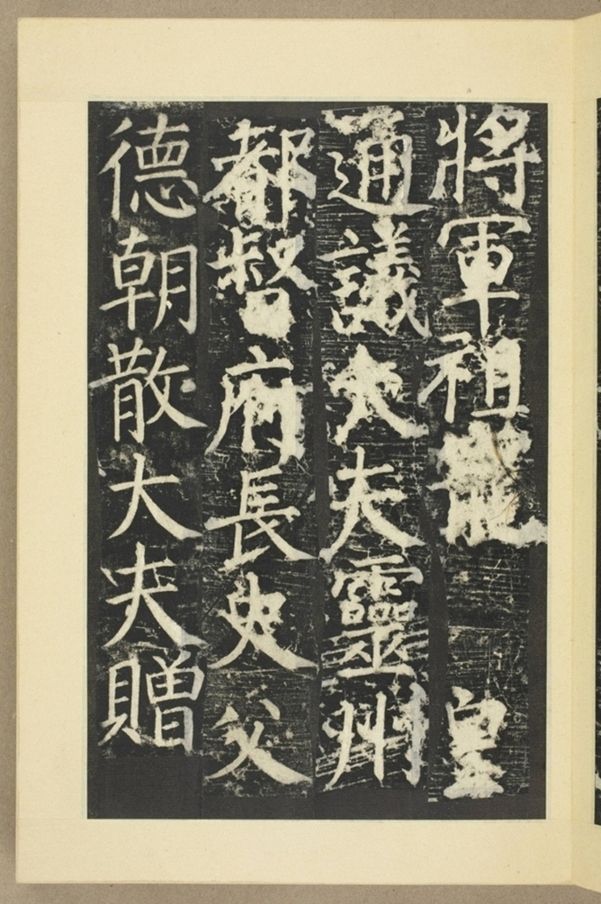 將軍祖寵皇
通議大夫靈州
都督府長史父
德朝散大夫贈